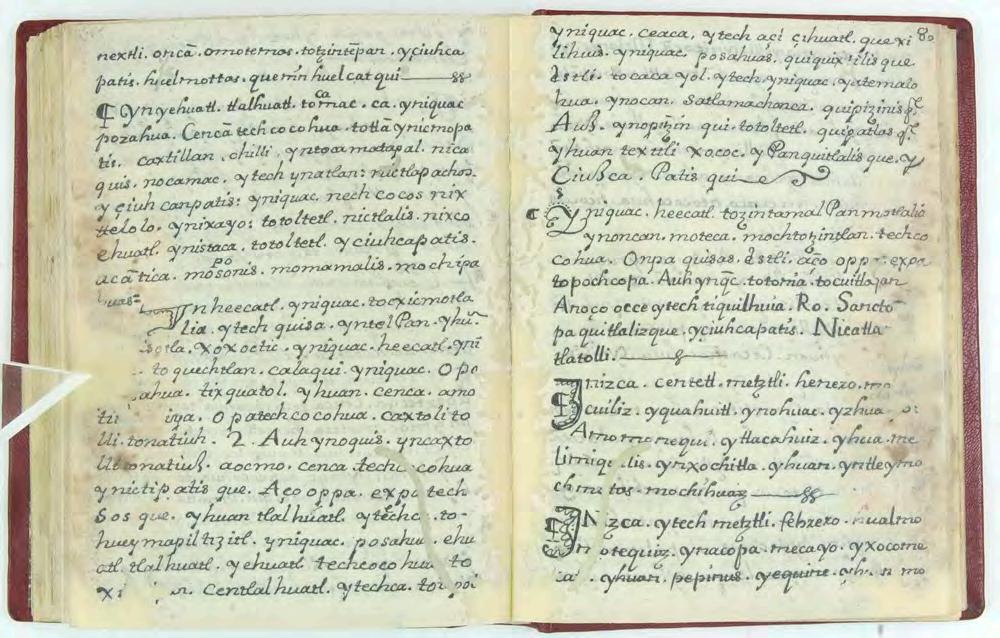 nextli. oncā. omotemas. totzintēpan. yciuhca
patis. huel mottas. quemin huel catqui
¶ Ynyehuatl. tlalhuatl. tomac. ca. yniquac
ca
pozahua. Cencā techcocohua. totlā ynicmopa
tis. caxtillan. chilli. yntoarmatapal. nica
quis. nocamac. ytech ynatlan: nictlapachos.
yciuh canpatis: yniquac. nechcocos nix
telolo. ynixayo: totoltetl. nictlalis. nixco
ehuatl. ynistaca. totoltetl. yciuhcapatis.
acātica. mosonis. momamalis. mochipa
po
huas
Jn heecatl. yniquac. tocxicmotla
lia. ytech quisa. yntol Pan. yhu
sotla. xoxoctic. yniquac. heecatl. yni
toquechtlan. calaqui. yniquac. Opo
ahua. tixquatol. yhuan. cenca. amo
tii iya. Opatechcocohua. caxtolito
lli. tonatiuh. 2. Auh ynoquis. yncaxto
lli tonatiuh. aocmo. cenca. techcocohua
ynictipatis que. Aço oppa. expa tech
sos que. yhuan tlalhuatl. ytechc. to-
hueymapiltzitl. yniquac. posahua. ehu
atl. tlalhuatl. yehuatl. techcocohua to
xi n. centlalhuatl. ytechca. to
yniquac. ceaca. ytech açi çihuatl. quexi
80
lihuis. yniquac. posahuas. quiquixtilis que
Estli. tocacayol. ytech. yniquac. yatemalo
hua. ynocan. satlamachonca. quipizinis q̄.
Auh. ynopizin qui. totoltetl. quipatlas q̄.
yhuan textili xococ. yPanquitlalis que. y
Ciuhca. Patis qui
Yniquac. heecatl. tozintamalPan motlalia
ynoncan. moteca. mochtotzintlan. techco
cohua. Onpa quisas. Estli. aço opp expa
topochcopa. Auh ynq̄c. totoma. tocuitlapan
Anoço occe ytech tiquilhuia. Ro. Sancto
paquitlalizque. yciuhcapatis. Nicatla
tlatolli.
Jnizca. centetl. metztli. henero. mo
cuiliz. yquahuitl. ynohuac. yzhua
Amomonequi. ytlacahuiz. yhua. me
limiqi lis. ynxochitla. yhuan. yntleymo
chmotos. mochihuaz
JNizca. ytech metztli. febrero. hualmo
otequiz. ynacopa. mecayo. yxocome
ca. yhuan. pepinus. yequine. yh mo